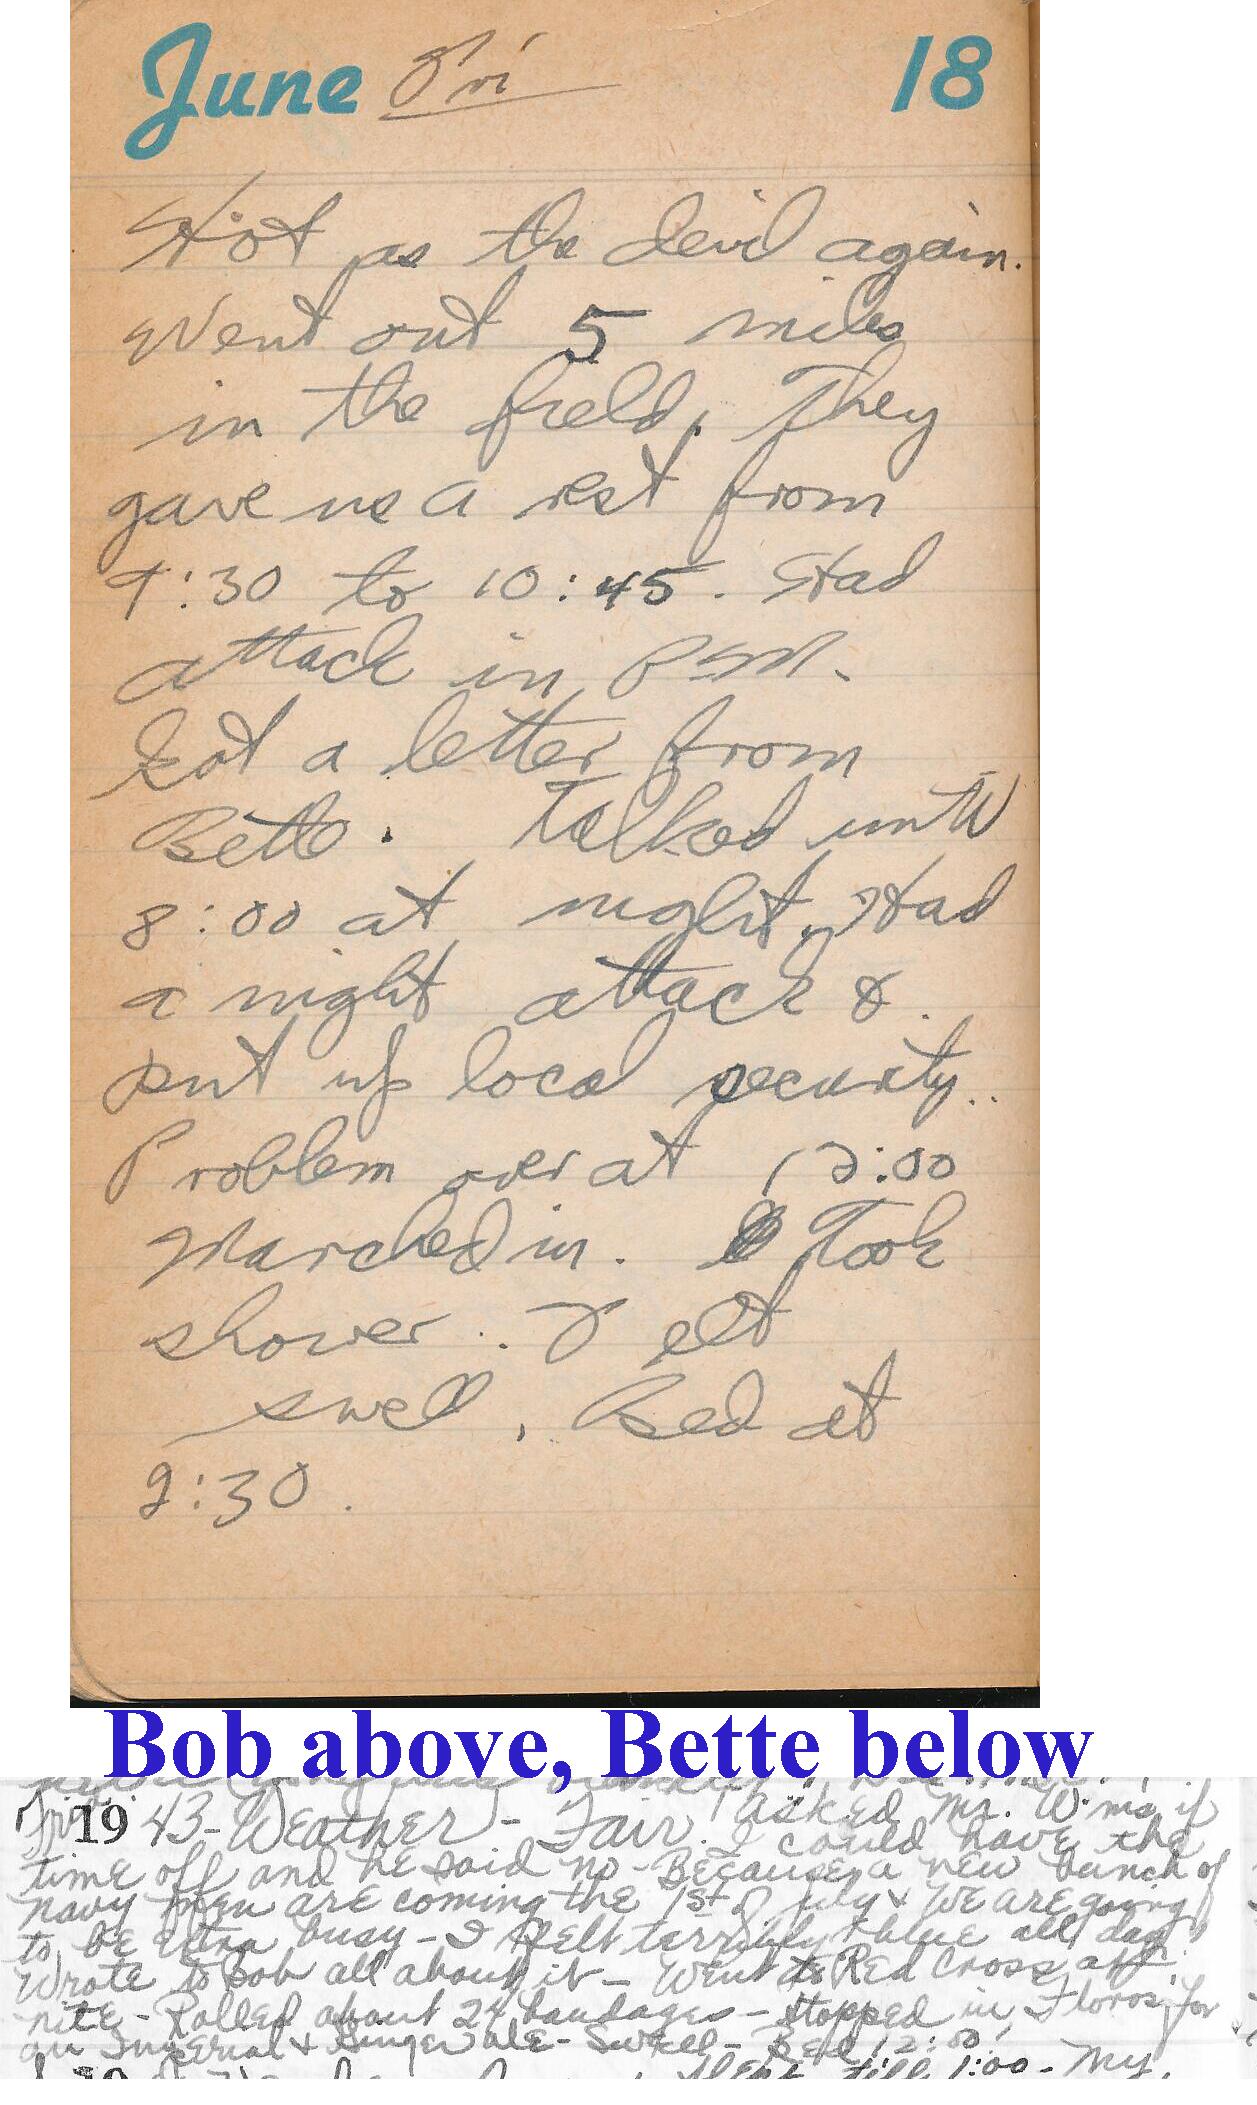 June Fri 18
Hot as the devil again.
Went out 5 miles
in the field. They
gave us a rest from
9:30 to 10:45. Had
attack in P.M.
Got a letter from
Bette. Talked until
8:00 at night. Had
a night attack &
put up local security..
Problem over at 12:00
Marched in. Took
shower. Felt
swell. Bed at
2:30.
Bob above, Bette below
Fri. 19 43 - Weather - Fair. I asked Mr. Wms. if
I could have the
time off and he said no - Because a new bunch of
navy men are coming the 1st of July & we are going
to be extra busy - I felt terribly blue all day.
Wrote to Bob all about it - Went to Red Cross at
nite - Rolled about 24 bandages - stopped in Floros for
an Imperial & Ginger ale - Swell - Bed 12:00.
till 1:00 - My